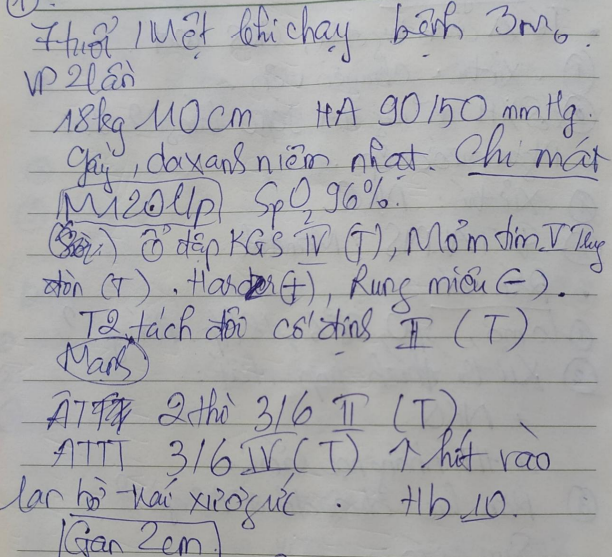 ①
7tuổi /Mệt khi chạy bệnh 3m
VP 2lần
18kg 110cm HA 90/50 mmHg.
gầy, daxanh niêm nhạt. Chi mát
M120l/p SpO2 96%.
ổ đập KGS IV (T), Mỏm tim V
đòn (T). Harzer (+), Rung miêu (-).
T2 tách đôi cố định II (T)
Mạnh
2thì 3/6 II (T)
ATTT 3/6 IV (T) ↑ hít vào
lan bờ xứớ. Hb 10.
Gan 2cm